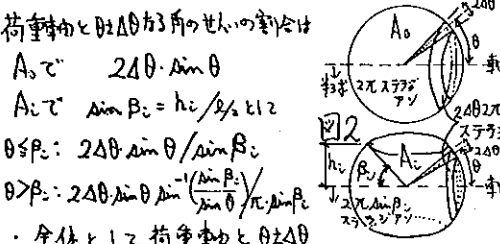 荷重軸とθ±Δθなる角のせんいの割合は
A₀で 2Δθ・sinθ
Aᵢで sinβᵢ=hᵢ/ℓ/₂として
θ≦βᵢ: 2Δθ・sinθ/sinβᵢ
θ>βᵢ: 2Δθ・sinθ sin⁻¹(sinβᵢ/sinθ)/π・sinβᵢ
・全体として荷重軸とθ±Δθ
A₀
2Δθ
θ
軸
半球
2πステラジアン
2Δθ2π
ステラ
図2
hᵢ
βᵢ
Aᵢ
2Δθ
θ
軸
2π sinβᵢ
ステラジアン